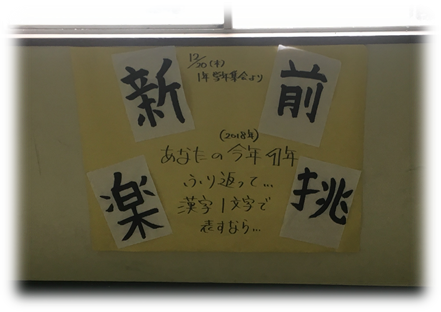 新
前
12/20(木)
1年学年集会より
(2018年)
あなたの今年1年
ふり返って…
漢字1文字で
表すなら…
楽
挑